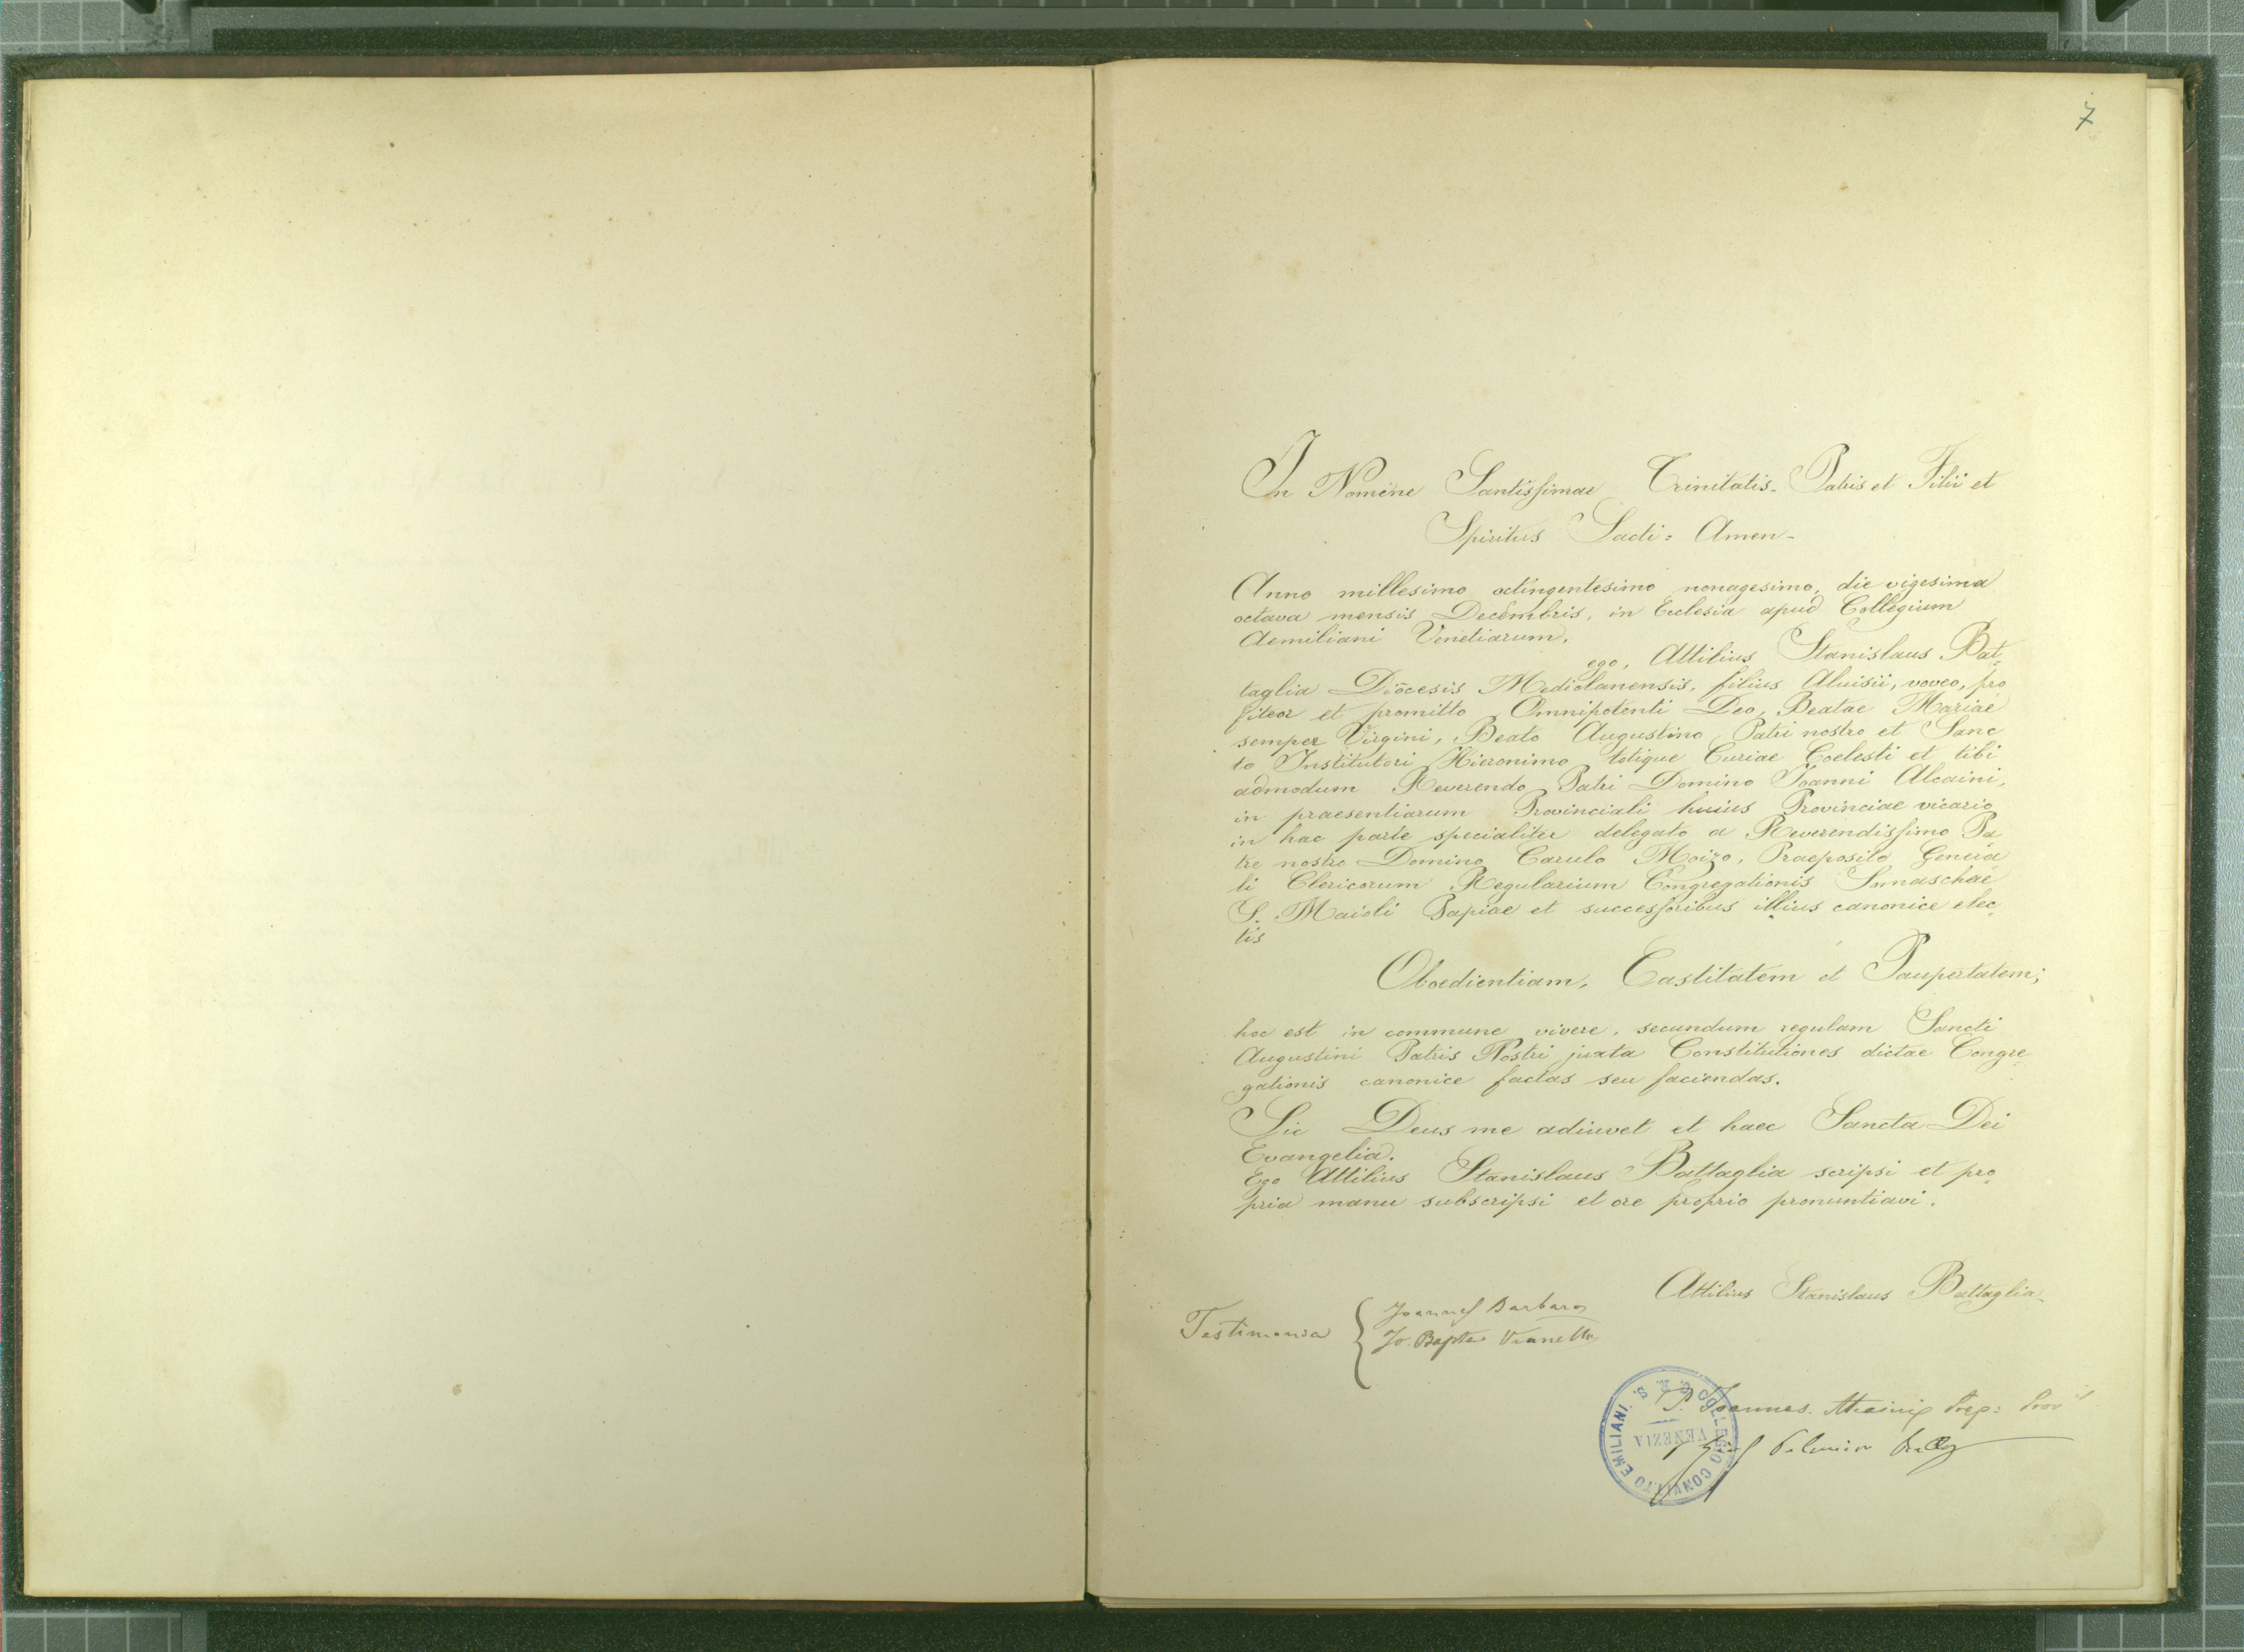 7
In Nomine Santissimae Trinitatis. Patris et Filii et
Spiritus Sacti = Amen -
Anno millesimo octingentesimo nonagesimo, die vigesima
octava mensis Decembris, in Eclesia apud Collegium
Aemiliani Venetiarum,
ego, Attilius Stanislaus Bat-
taglia Diocesis Mediolanensis, filius Aluisii, voveo, pro
fiteor et promitto Omnipotenti Deo, Beatae Mariae
semper Virgini, Beato Augustino Patri nostro et Sanc
to Institutori Hieronimo totique Curiae Coelesti et tibi
admodum Reverendo Patri Domino Ioanni Alcaini,
in praesentiarum Provinciali huius Provinciae vicario
in hac parte specialiter delegato a Reverendissimo Pa
tre nostro Domino Carulo Moizo, Praeposito Genera
li Clericorum Regularium Congregationis Somaschae
S. Maioli Papiae et successoribus illius canonice elec
tis
Oboedientiam, Castitatem et Paupertatem;
hoc est in commune vivere, secundum regulam Sancti
Augustini Patris Nostri juxta Constitutiones dictae Congre=
gationis canonice factas seu faciendas.
Sic Deus me adiuvet et haec Sancta Dei
Evangelia.
Ego Attilius Stanislaus Battaglia scripsi et pro
pria manu subscripsi et ore proprio pronuntiavi.
Attilius Stanislaus Battaglia
Testimonia { Joannes Barbaro
Jo. Bapta Vianello
P. Joannes Alcaini Prep: Prov
COLLEGIO CONVITTO EMILIANI. C. R. S.
VENEZIA